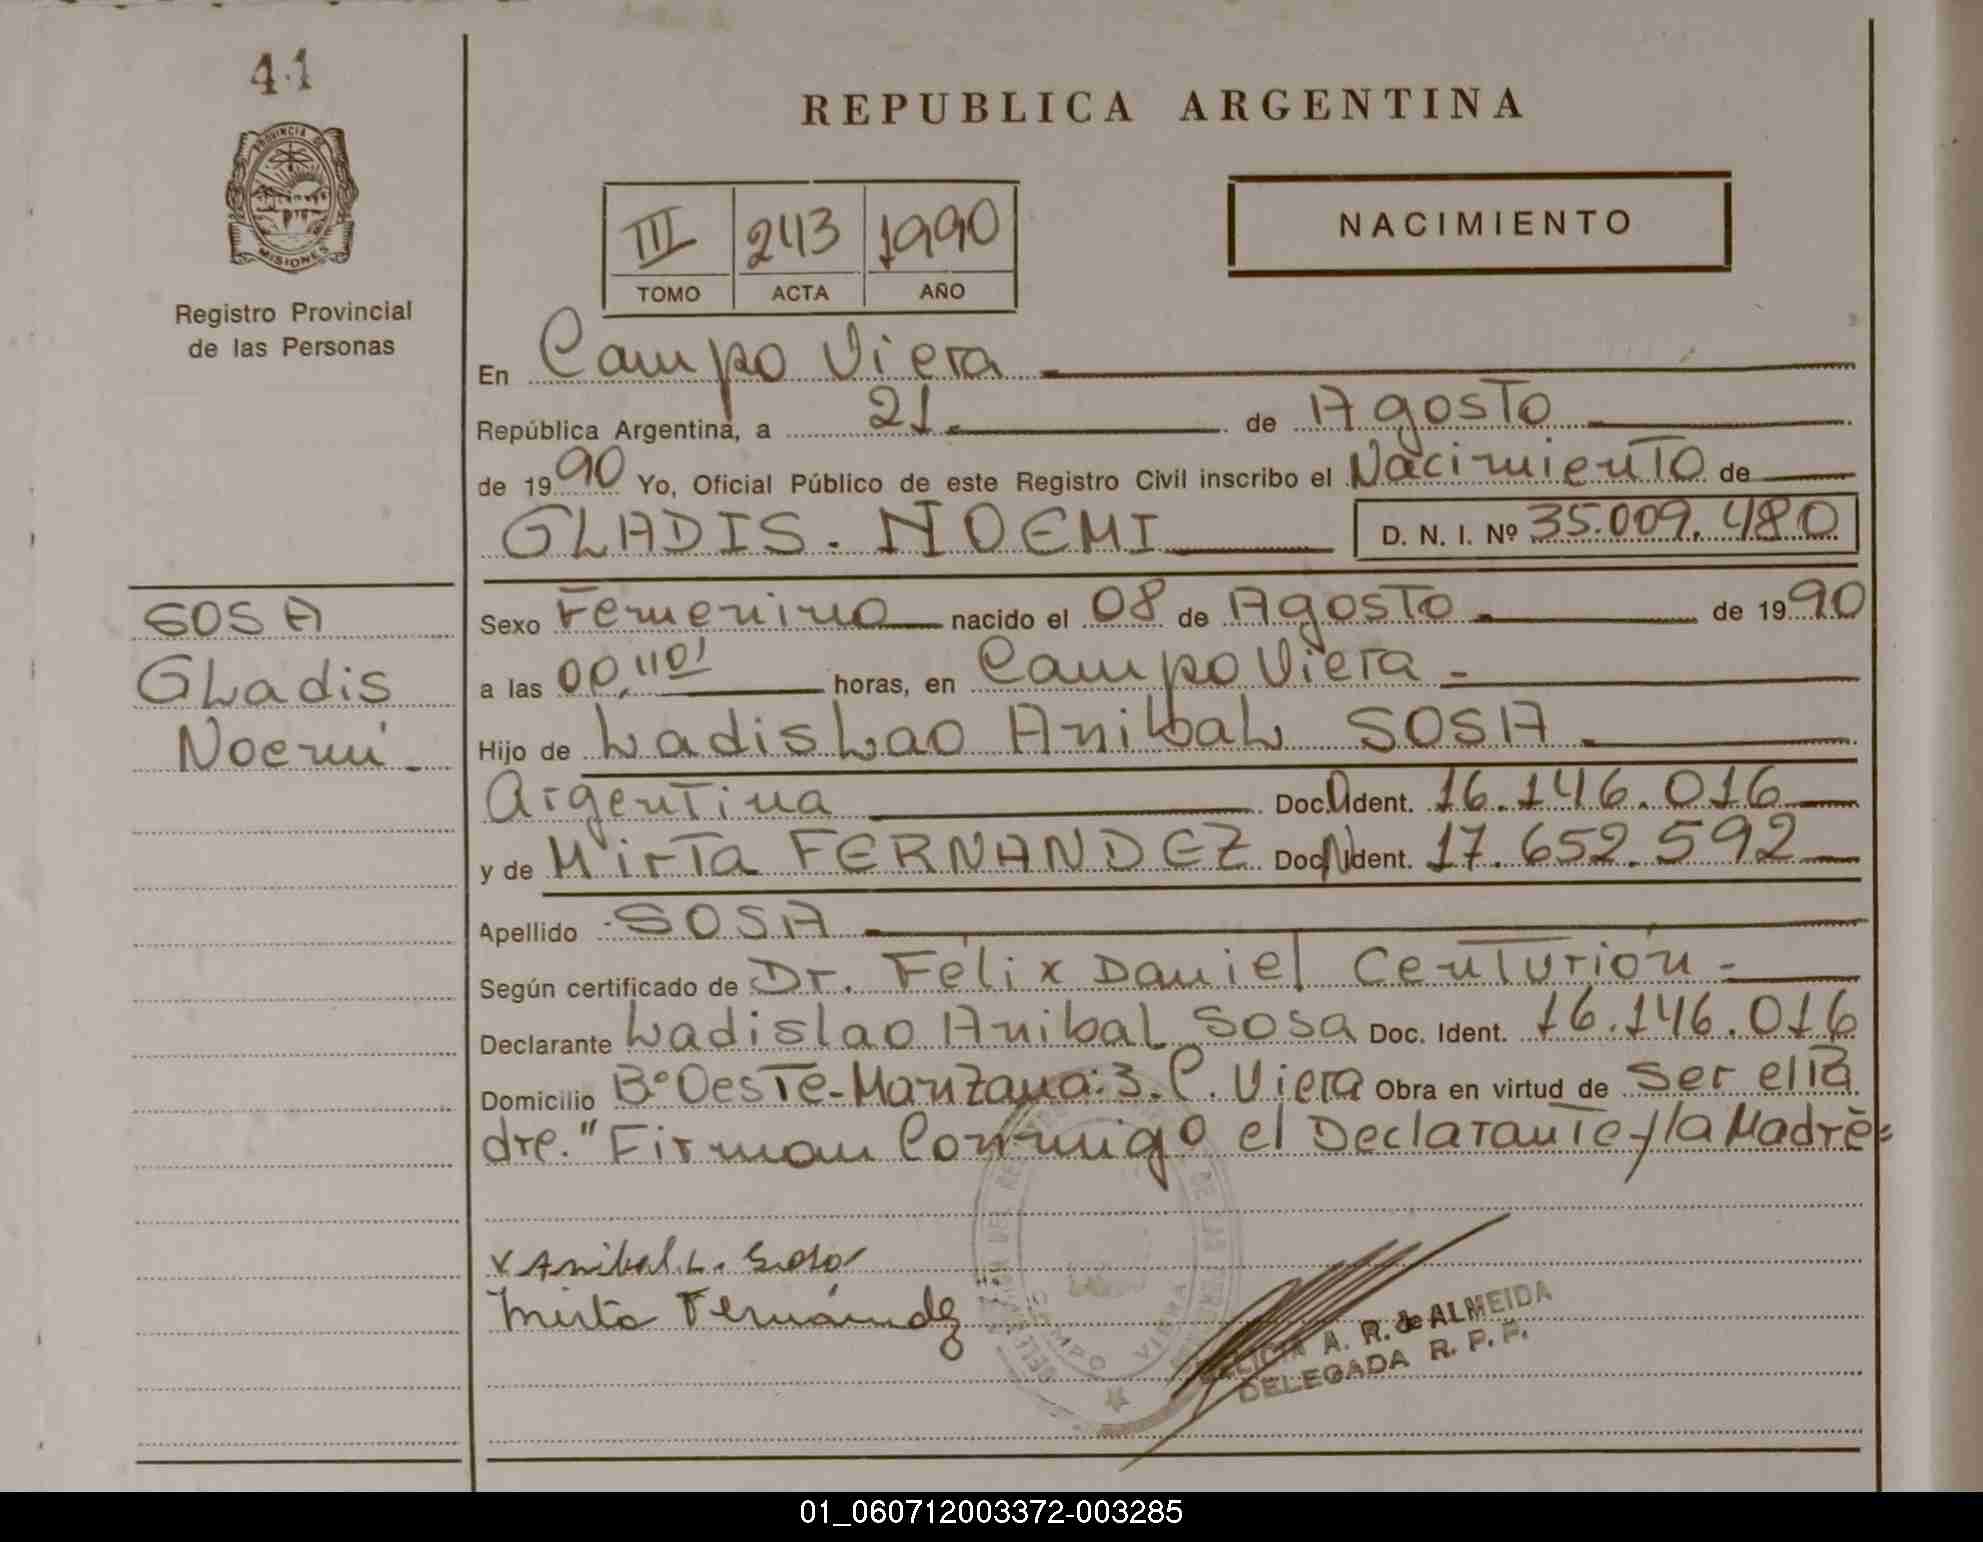 41
PROVINCIA DE
MISIONES
Registro Provincial
de las Personas
SOSA
Gladis
Noemi.
REPUBLICA ARGENTINA
III 243 1990
TOMO ACTA AÑO
NACIMIENTO
En Campo Viera
República Argentina, a 21. de Agosto
de 1990 Yo, Oficial Público de este Registro Civil inscribo el Nacimiento de
GLADIS. NOEMI D. N. I. Nº 35.009.480
Sexo Femenino nacido el 08 de Agosto de 1990
a las horas, en Campo Viera
Hijo de Ladislao Anibal SOSA
Argentina Doc. Ident. 16.146.016
y de Mirta FERNANDEZ Doc. Ident. 17.652.592
Apellido SOSA
Según certificado de Dr. Félix Daniel Centurión
Declarante Ladislao Anibal Sosa Doc. Ident. 16.146.016
Domicilio Bº Oeste-Manzana:3. C. Viera Obra en virtud de ser el Pa
dre." Firman Conmigo el Declarante y la Madre=
x Anibal L. Sosa
Mirta Fernández
CAMPO VIERA
A. R. de ALMEIDA
DELEGADA R. P. P.
01_060712003372-003285